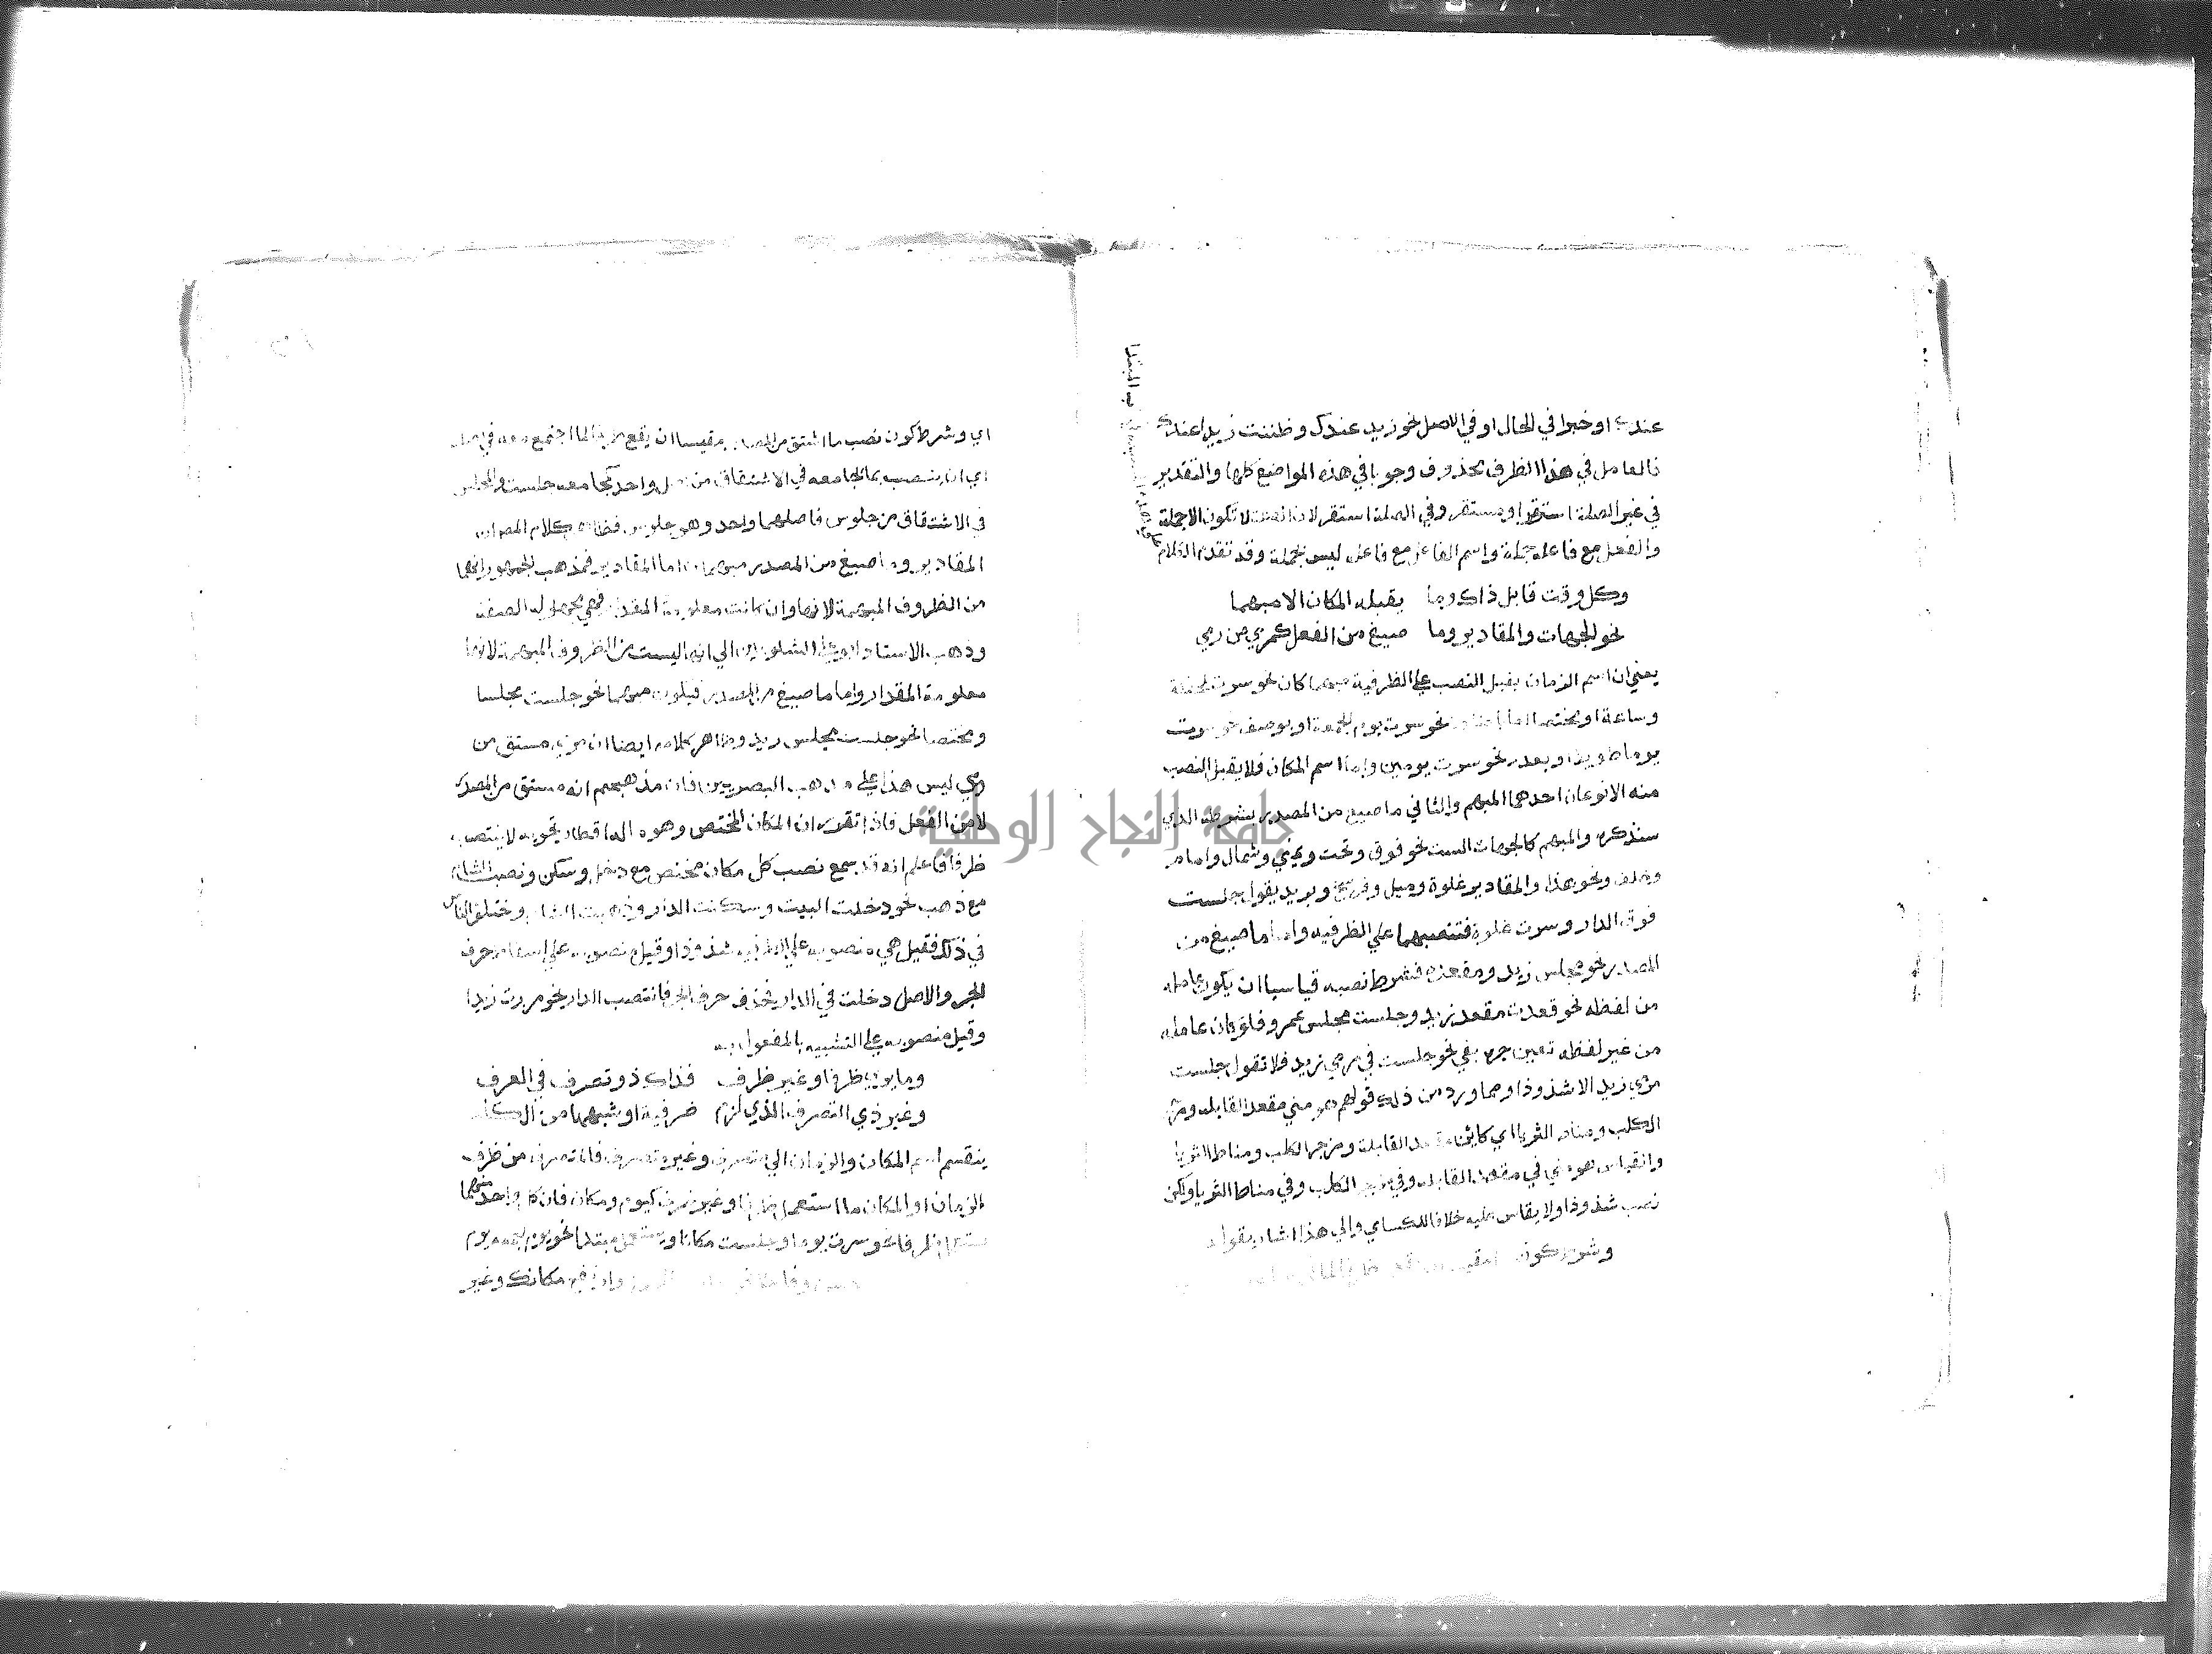 عندك اوخبرا في الحال او في الاصل نحو زيد عندك وظننت زيدا عندك
فالعامل في هذا الظرف محذوف وجوبا في هذه المواضع كلها والتقدير
في غير الصلة استقر او مستقر وفي الصلة استقر لان الصلة لا تكون الاجملة
والفعل مع فاعله جملة واسم الفاعل مع فاعله ليس بجملة وقد تقدم الكلام
وكل وقت قابل ذاك وما يقبله المكان الا مبهما
نحو الجهات والمقادير وما صيغ من الفعل كمرمي من رمي
يعني ان اسم الزمان يقبل النصب علي الظرفية مبهما كان نحو سرت لحظة
وساعة او مختصا اما باضافة نحو سرت يوم الجمعة او بوصف نحو سرت
يوما طويلا او بعدد نحو سرت يومين واما اسم المكان فلا يقبل النصب
منه الا نوعان احدهما المبهم والثاني ما صيغ من المصدر بشرطه الذي
سنذكره والمبهم كالجهات الست نحو فوق وتحت ويمين وشمال وامام
وخلف ونحو هذا والمقادير غلوة وميل وفرسخ وبريد يقول جلست
فوق الدار وسرت غلوة فتنصبهما علي الظرفيه واما ما صيغ من
المصدر نحو مجلس زيد ومقعده فشرط نصبه قياسا ان يكون عامله
من لفظه نحو قعدت مقعد زيد وجلست مجلس عمرو فلو كان عامله
من غير لفظه تعين جره بفي نحو جلست في مرمي زيد فلا تقول جلست
مرمي زيد الا شذوذا ومما ورد من ذلك قولهم هو مني مقعد القابله ومزجر
الكلب ومناط الثريا اي كائن مقعد القابلة ومزجر الكلب ومناط الثريا
والقياس هو مني في مقعد القابله وفي مزجر الكلب وفي مناط الثريا ولكن
نصب شذوذا ولا يقاس عليه خلافا للكساي والي هذا اشار بقوله
وشرط كون
اي وشرط كون نصب ما اشتق من المصدر مقيسا ان يقع ظرفا لما اجتمع معه في اصله
اي ان ينتصب بما يجامعه في الاشتقاق من اصل واحد كمجامعه جلست والمجلس
في الاشتقاق من جلوس فاصلهما واحد وهو جلوس فظاهر كلام المص ان
المقادير وما صيغ من المصدر مبهمان اما المقادير فمذهب الجمهور انها
من الظروف المبهمة لانها وان كانت معلومة المقدار فهي مجهوله الصفة
وذهب الاستاذ ابو علي الشلوبين الي انها ليست من الظروف المبهمة لانها
معلومة المقدار واما ما صيغ من المصدر فيكون مبهما نحو جلست مجلسا
ومختصا نحو جلست مجلس زيد وظاهر كلامه ايضا ان مرمي مشتق من
رمي ليس هذا علي مذهب البصريين فان مذهبهم انه مشتق من المصدر
لامن الفعل فاذا تقرر ان المكان المختص وهو ماله اقطار تحويه لا ينتصب
ظرفا فاعلم انه قد سمع نصب كل مكان مختص مع دخل وسكن ونصب الشام
مع ذهب نحو دخلت البيت وسكنت الدار وذهبت الشام واختلف الناس
في ذلك فقيل هي منصوبه علي الظرفيه شذوذا وقيل منصوبه علي اسقاط حرف
الجر والاصل دخلت في الدار فحذف حرف الجر فانتصب الدار نحو مررت زيدا
وقيل منصوبه علي التشبيه بالمفعول به
وما يري ظرفا وغير ظرف فذاك ذو تصرف في العرف
وغير ذي التصرف الذي لزم ضرفية او شبهها من الكلم
ينقسم اسم المكان والزمان الي متصرف وغير متصرف فالمتصرف من ظرف
الزمان او المكان ما استعمل ظرفا وغير ظرف كيوم ومكان فان كل واحد منهما
يستعمل ظرفا نحو سرت يوما وجلست مكانا ويستعمل مبتدا نحو يوم الجمعه يوم
مكانك وغير
جامعة النجاح الوطنية